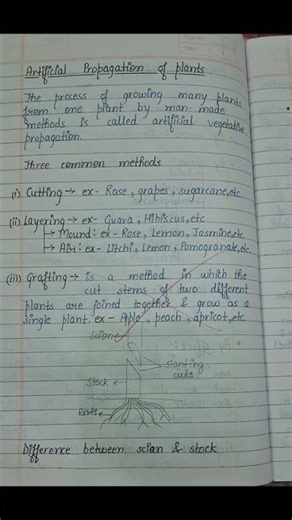 Artificial Propagation of plants
The process of growing many plants
from one plant by man-made
methods is called artificial vegetative
propagation.
Three common methods
(i) Cutting → ex- Rose, grapes, sugarcane, etc.
(ii) Layering → ex- Guava, Hibiscus, etc
→ Mound: ex- Rose, Lemon, Jasmine, etc
→ Air: ex- Litchi, Lemon, Pomogranate, etc.
(iii) Grafting → is a method in which the
cut stems of two different
plants are joined together & grow as a
single plant. ex - Aple, peach, apricot, etc
Scion
Slanting
cuts
Stock
Roots
Difference between scian & stock